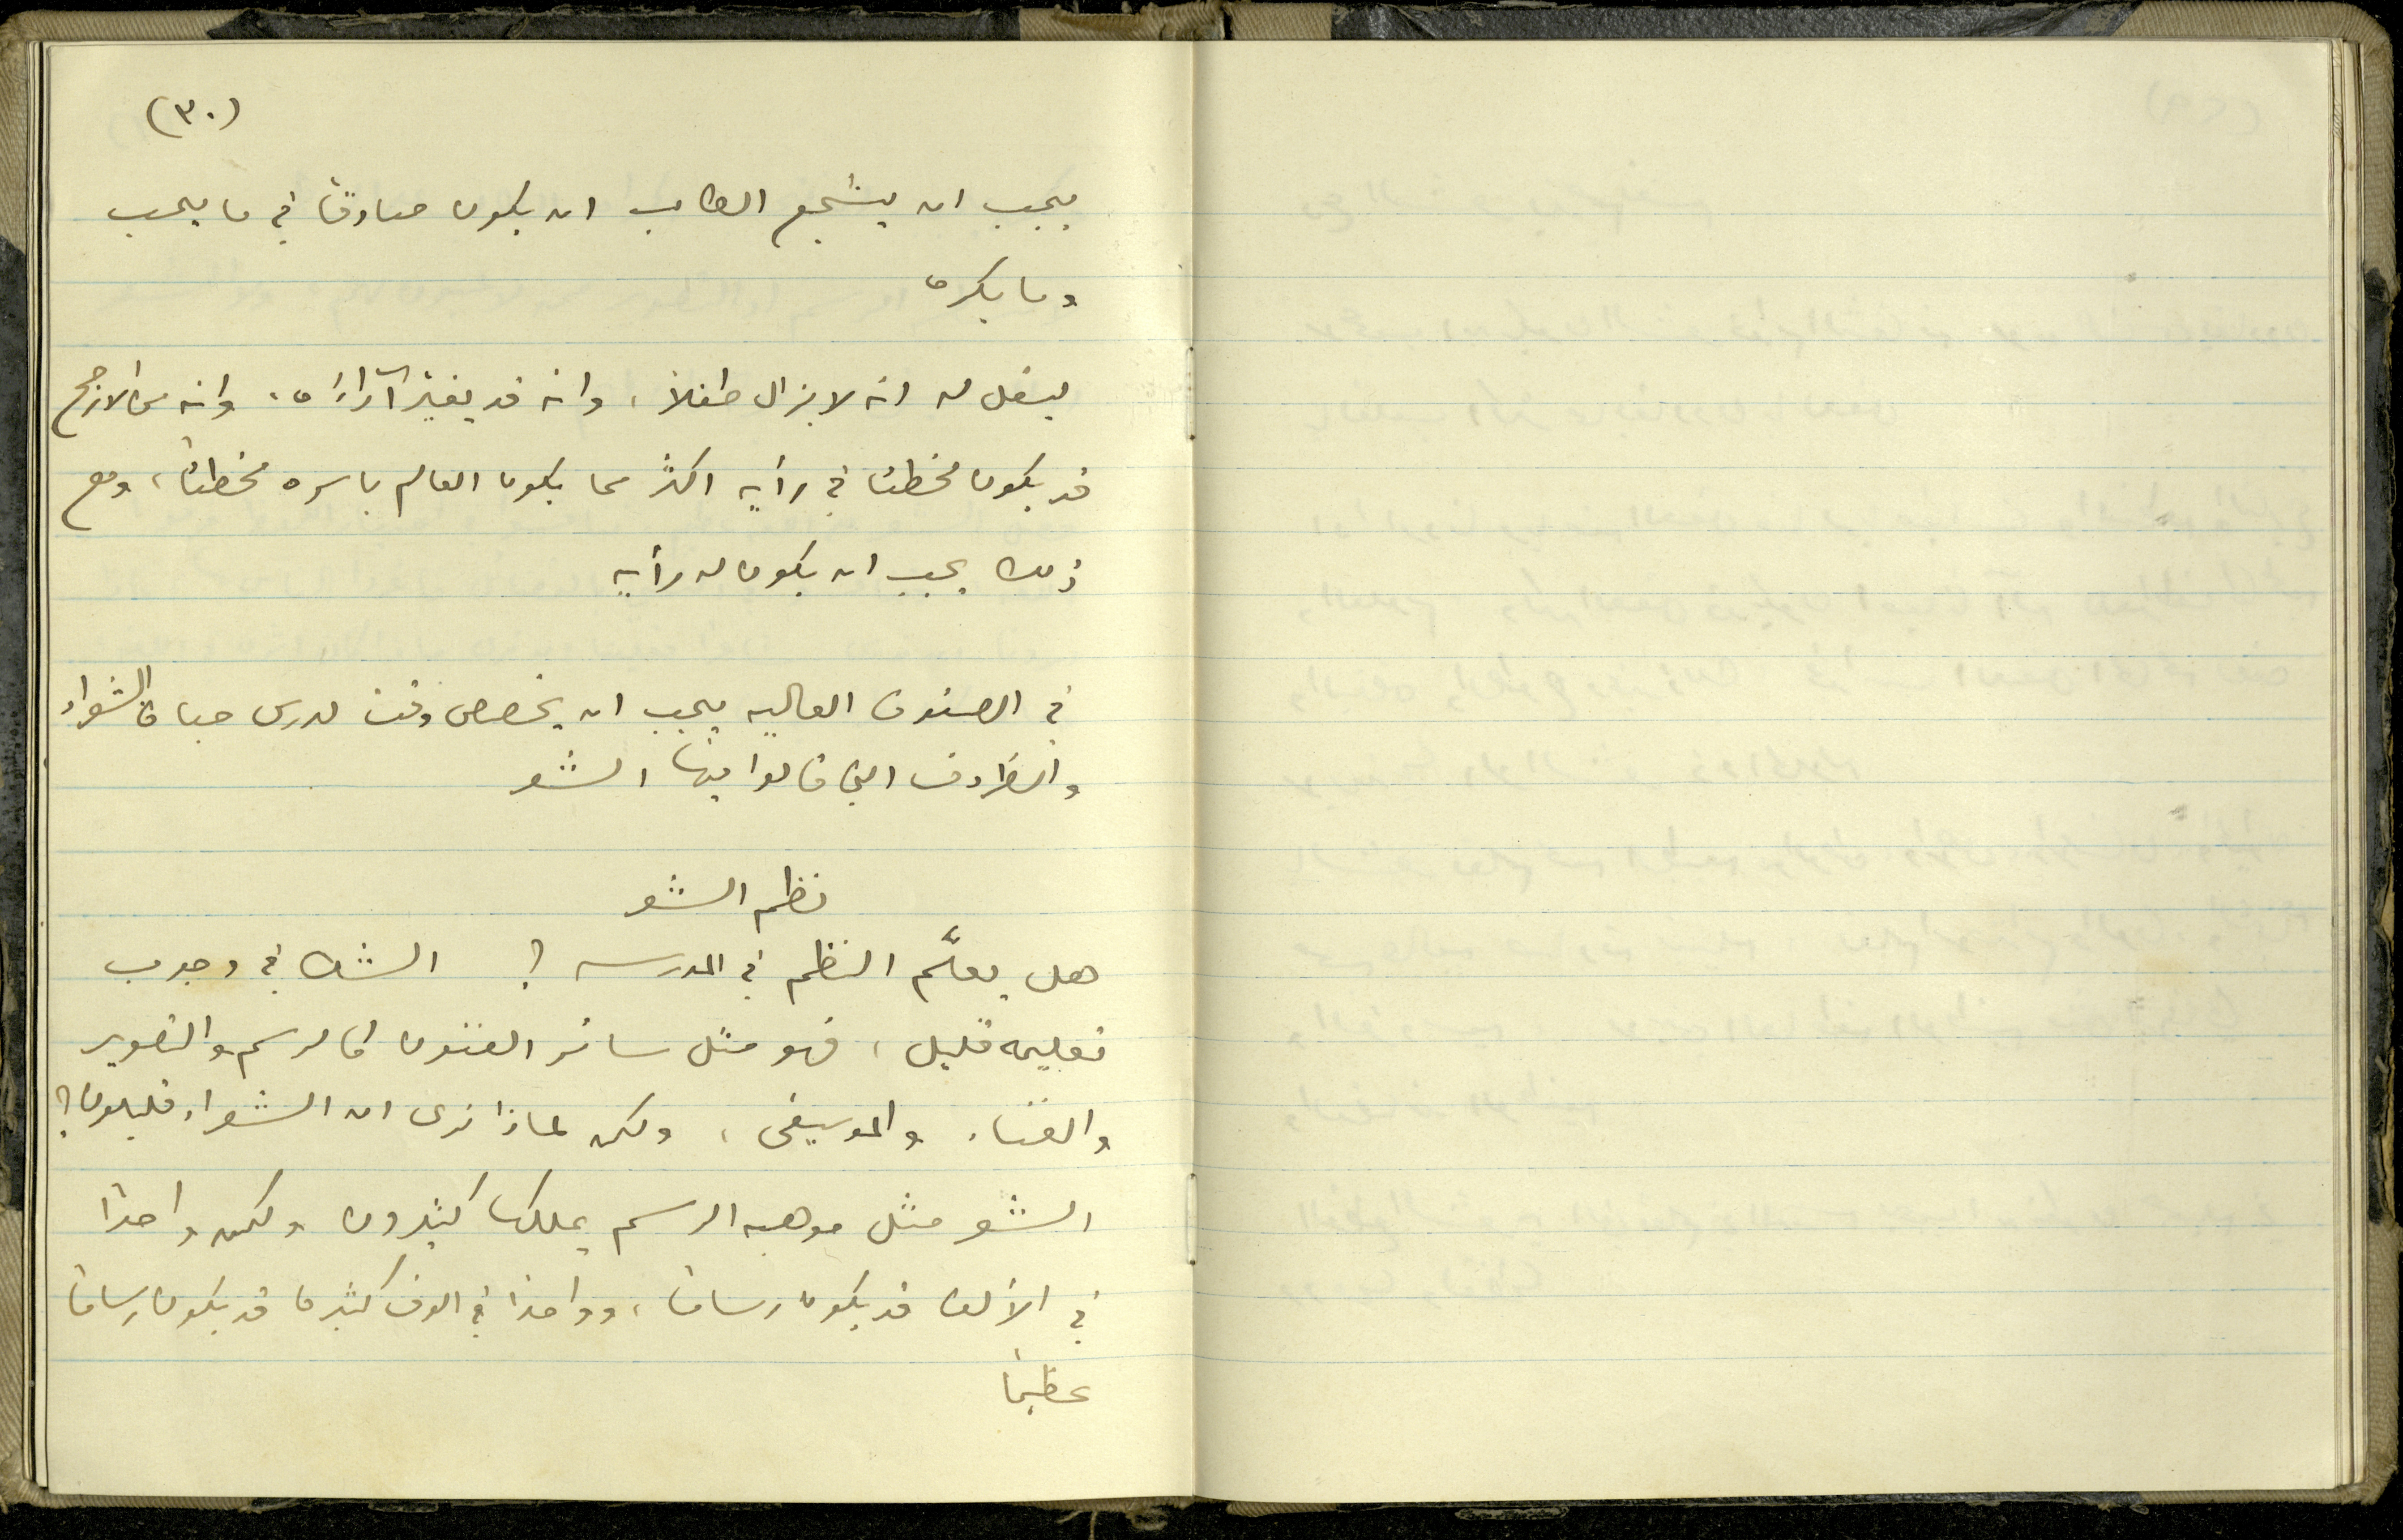 (٣٠)
يجب ان يشجع الطالب ان يكون صادقًا في ما يحب
وما يكره
ليقل له انه لا يزال طفلاً، وانه قد يغيّر آراءه، وانه على الارجح
قد يكون مخطئا في رأيه اكثر مما يكون العالم باسره مخطئًا، ومع
ذلك يجب ان يكون له رأيه
في الصفوف العاليه يجب ان يخصص وقت لدرس حياة الشعراء
والظروف التي قالوا فيها الشعر
نظم الشعر
هل يعلَّم النظم في المدرسه ؟ الشك في وجوب
تعليمه قليل، فهو مثل سائر الفنون كالرسم والتصوير
والغناء والموسيقى، ولكن لماذا نرى ان الشعراء قليلون؟
الشعر مثل موهبه الرسم يملكها كثيرون ولكن واحدًا
في الألف قد يكون رسامًا، وواحدًا في الوف كثيره قد يكون رسامًا
عظيمًا